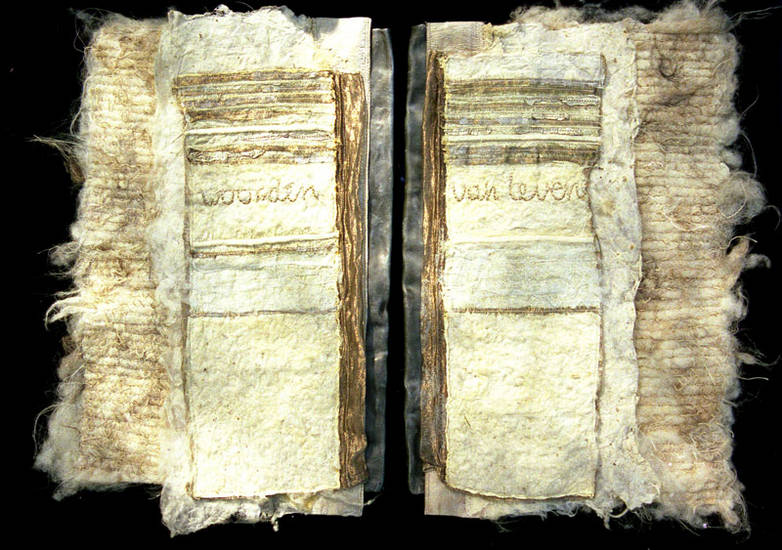 woorden
van leven